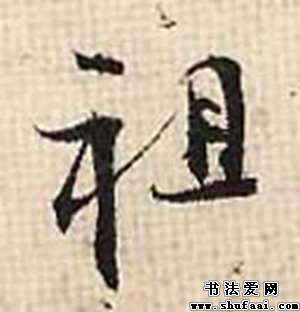 祖
书法爱网
www.shufaai.com